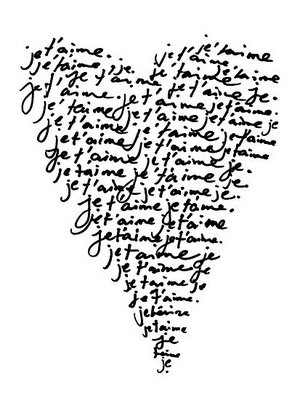 je t'aime. je t'aime
je t'aime. je. je t'aime je t'aime
je t'aime. je t'aime je.
je t'aime je t'aime je t'aime.
je t'aime je t'aime je
je t'aime je t'aime je t'aime
je t'aime je t'aime je t'aime
je t'aime je t'aime je.
je t'aime je t'aime je
je t'aime je t'aime je.
je t'aime je t'aime.
je t'aime je t'aime
je t'aime je t'aime.
je t'aime je
je t'aime je
je t'aime je
je t'aime.
je t'aime
je
t'aime
je